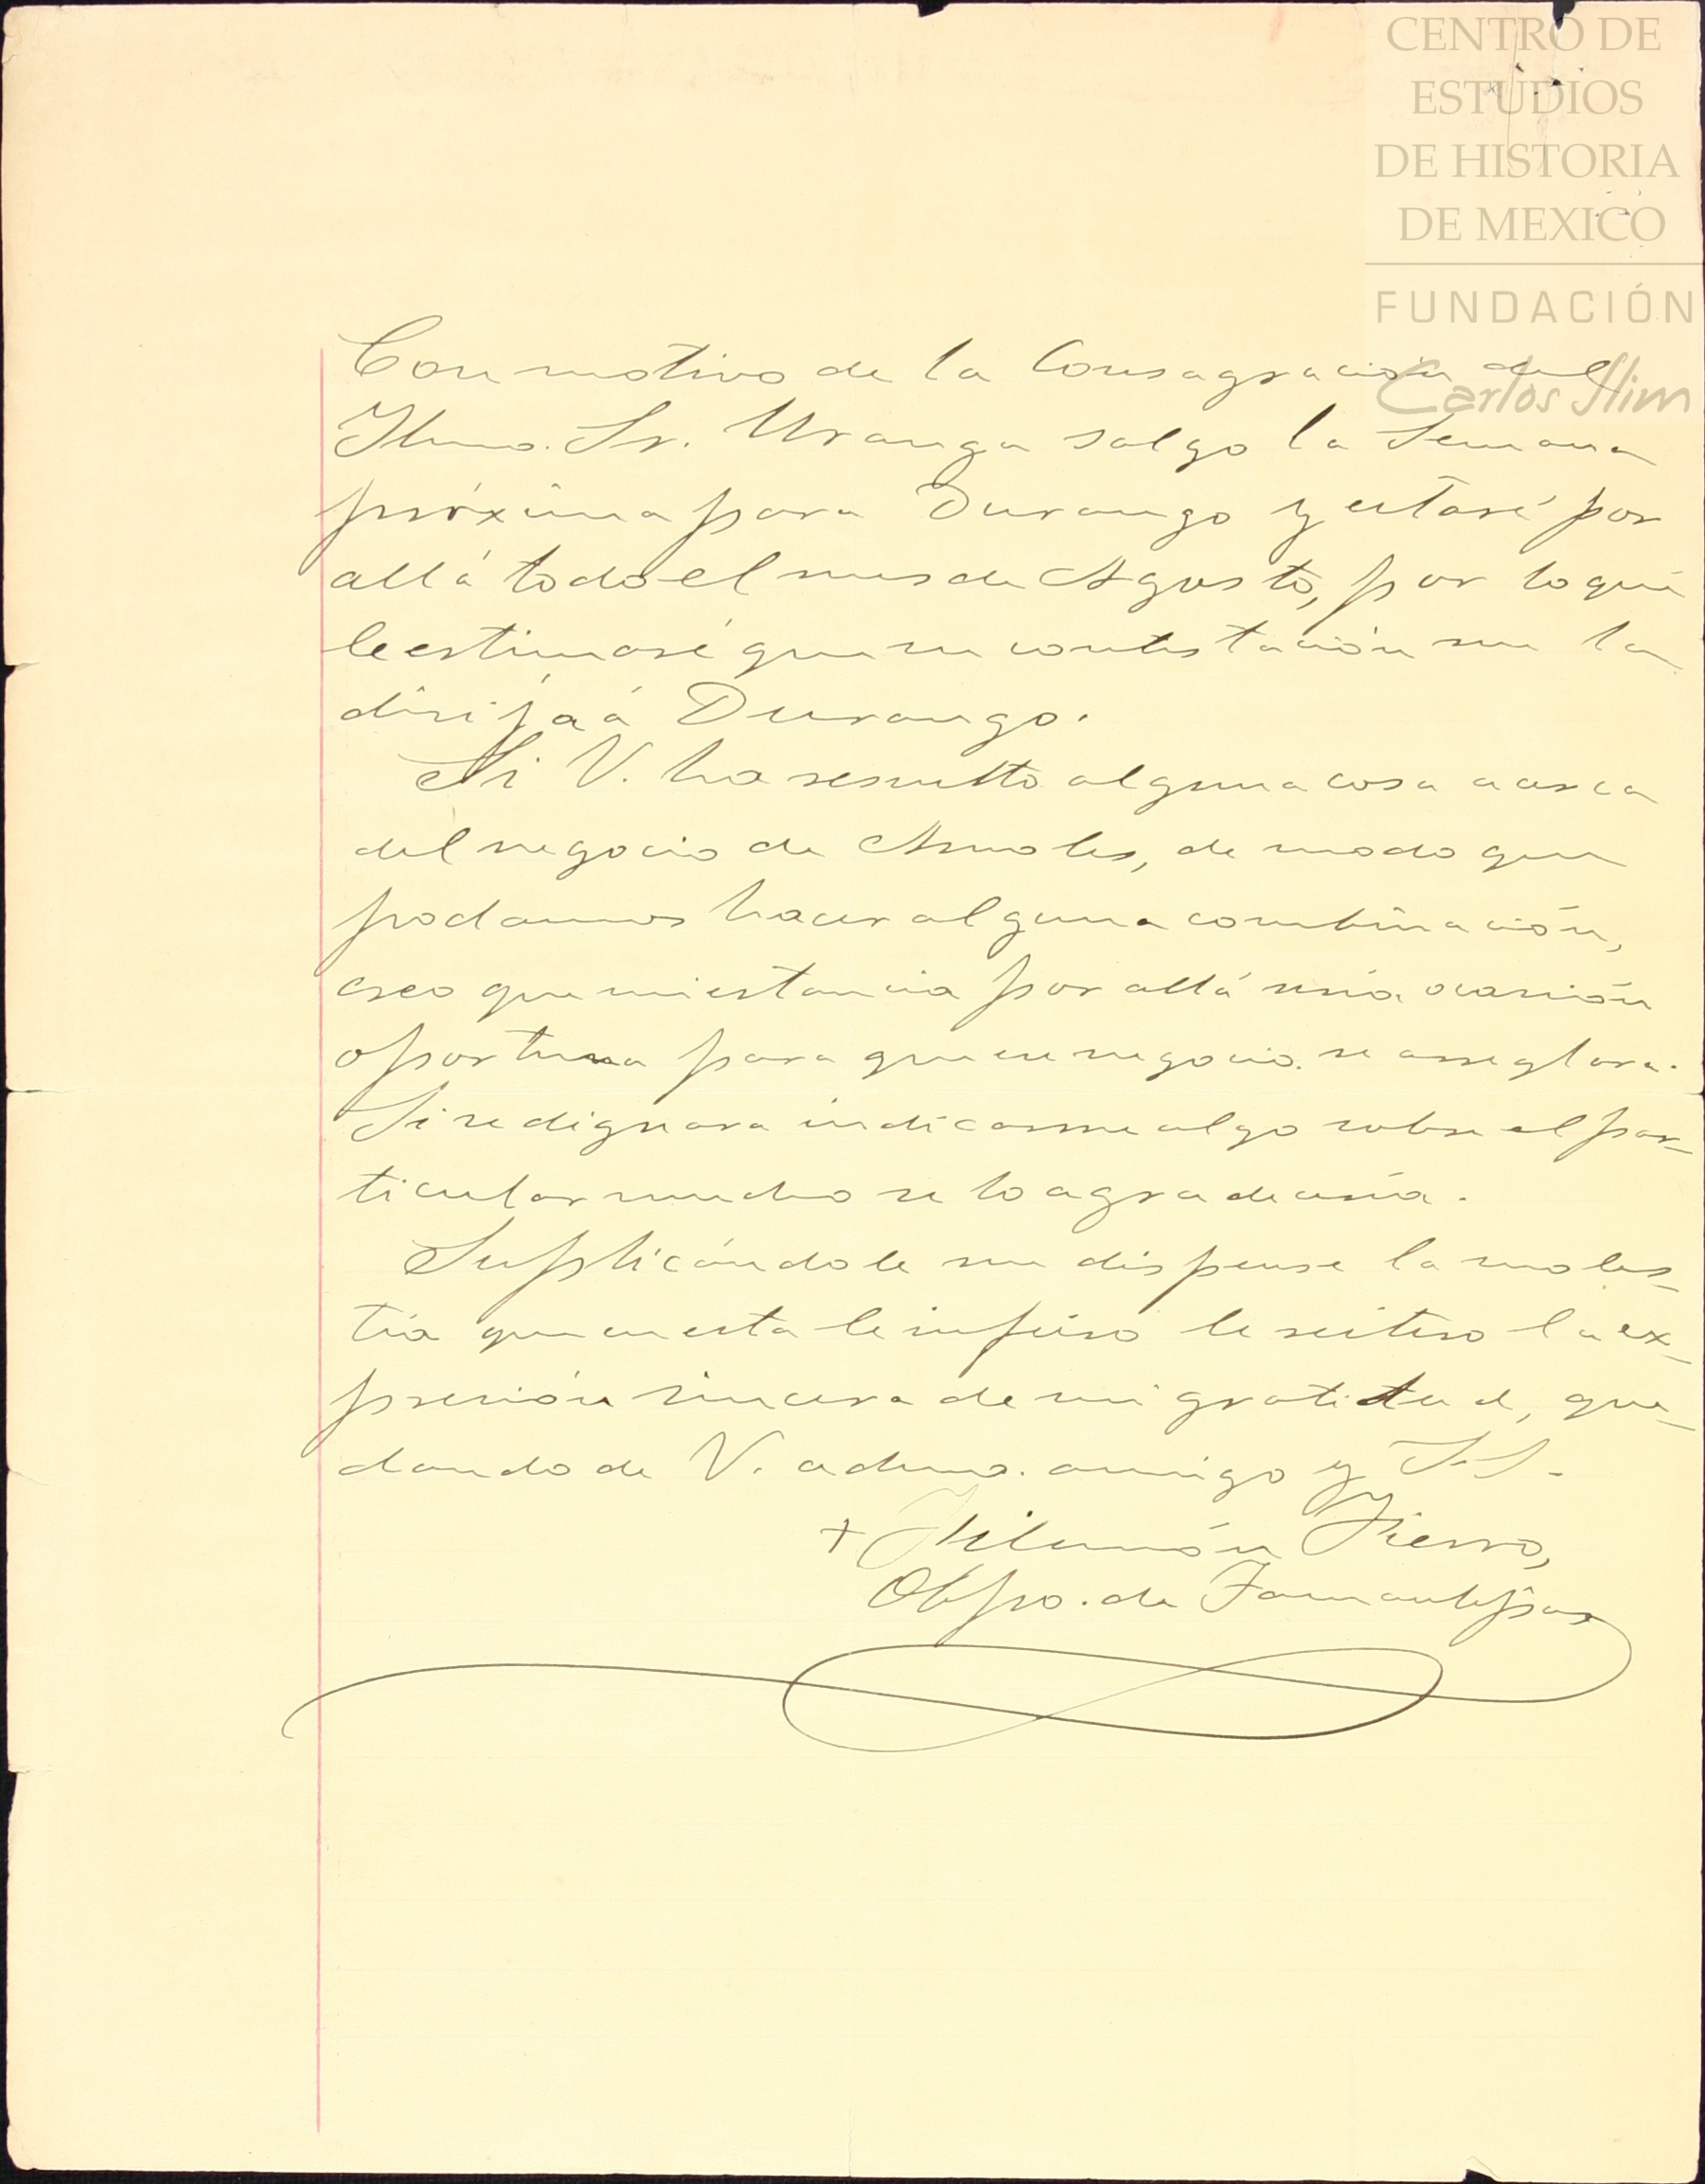 CENTRO DE
ESTUDIOS
DE HISTORIA
DE MEXICO
FUNDACIÓN
Carlos Slim
Con motivo de la Consagración del
Ilmo. Sr. Uranga salgo la Semana
próxima para Durango y estaré por
allá todo el mes de Agosto, por lo que
le estimaré que su contestación me la
dirija á Durango.
Si V. ha resuelto alguna cosa acerca
del negocio de Amoles, de modo que
podamos hacer alguna combinación,
creo que mi estancia por allá sería ocasión
oportuna para que ese negocio se arreglara.
Si se dignara indicarme algo sobre el par-
ticular mucho se lo agradecería.
Suplicándole me dispense la moles-
tia que en esta le infiero le reitero la ex-
presión sincera de mi gratitud, que-
dando de V. adms. amigo y S.S.
+ Filemón Fierro,
Obpo. de Tamaulipas